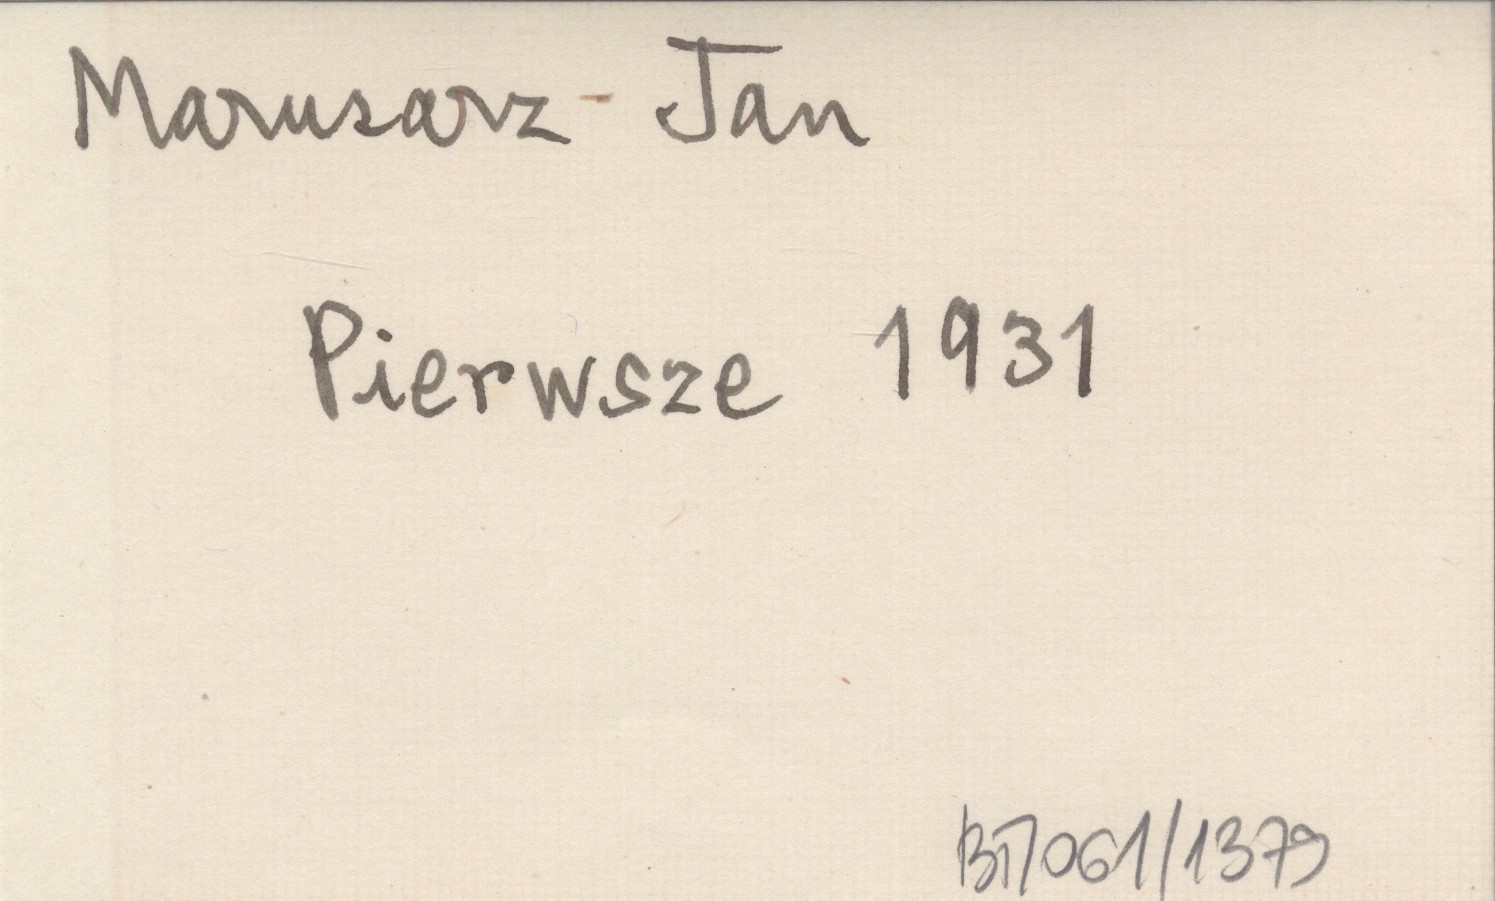 Marusarz - Jan
Pierwsze 1931
BT/061/1379